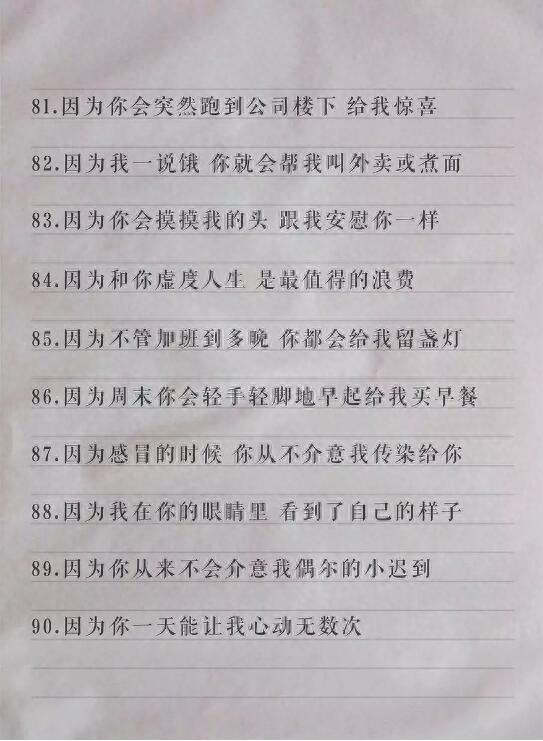 81.因为你会突然跑到公司楼下 给我惊喜
82.因为我一说饿 你就会帮我叫外卖或煮面
83.因为你会摸摸我的头 跟我安慰你一样
84.因为和你虚度人生 是最值得的浪费
85.因为不管加班到多晚 你都会给我留盏灯
86.因为周末你会轻手轻脚地早起给我买早餐
87.因为感冒的时候 你从不介意我传染给你
88.因为我在你的眼睛里 看到了自己的样子
89.因为你从来不会介意我偶尔的小迟到
90.因为你一天能让我心动无数次